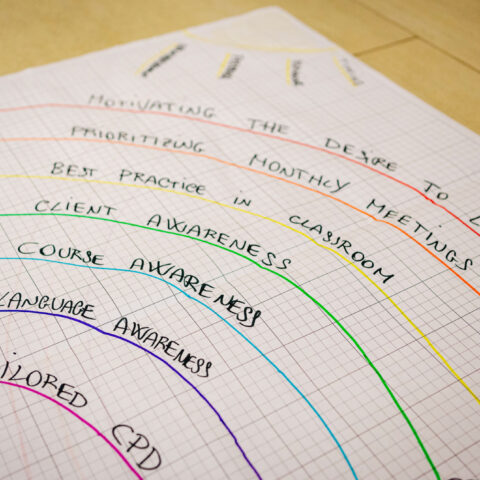 MOTIVATING THE DESIRE TO
PRIORITIZING MONTHLY MEETINGS
BEST PRACTICE IN CLASSROOM
CLIENT AWARENESS
COURSE AWARENESS
LANGUAGE AWARENESS
ILORED CPD